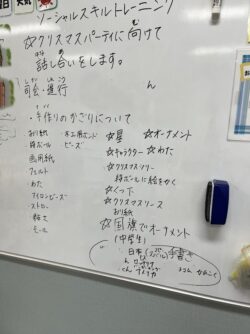 ソーシャルスキルトレーニング
☆クリスマスパーティに向けて
話し合いをします。
司会・進行 ん
・手作りのかざりについて
おり紙 ・木工用ボンド
段ボール ・ビーズ
画用紙
フェルト
・わた
アイロンビーズ
・ストロー
・モール
☆星 ☆オーナメント
☆キャラクター ☆わた
☆クリスマスツリー
段ボールに絵をかく
☆くつ下
☆クリスマスリース
おり紙
☆国旗でオーナメント
(中学生)
日本 手書き
くん アメリカ